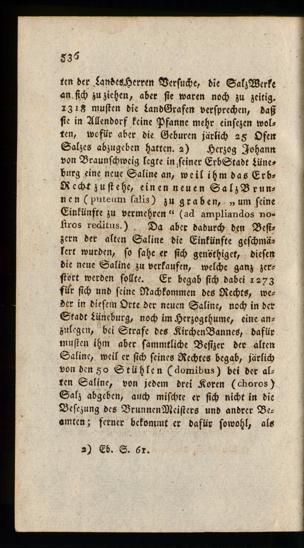 536
ten der LandesHerren Versuche, die SalzWerke
an sich zu ziehen, aber sie waren noch zu zeitig.
1318 musten die LandGrafen versprechen, daß
sie in Allendorf keine Pfanne mehr einsezen wol-
ten, wofür aber die Geburen järlich 25 Ofen
Salzes abzugeben hatten. 2) Herzog Johann
von Braunschweig legte in seiner ErbStadt Lüne-
burg eine neue Saline an, weil ihm das Erb-
Recht zustehe, einen neuen SalzBrun-
nen (puteum salis) zu graben, „um seine
Einkünfte zu vermehren” (ad ampliandos no-
stros reditus.) Da aber dadurch den Besi-
zern der alten Saline die Einkünfte geschmä-
lert wurden, so sahe er sich genöthiget, diesen
die neue Saline zu verkaufen, welche ganz zer-
stört werden sollte. Er begab sich dabei 1273
für sich und seine Nachkommen des Rechts, we-
der in diesem Orte der neuen Saline, noch in der
Stadt Lüneburg, noch im Herzogthume, eine an-
zulegen, bei Strafe des KirchenBannes, dafür
musten ihm aber sammtliche Besizer der alten
Saline, weil er sich seines Rechtes begab, järlich
von den 50 Stühlen (domibus) bei der al-
ten Saline, von jedem drei Koren (choros)
Salz abgeben, auch mischte er sich nicht in die
Besezung des BrunnenMeisters und andrer Be-
amten; ferner bekommt er dafür sowohl, als
2) Eb. S. 61.